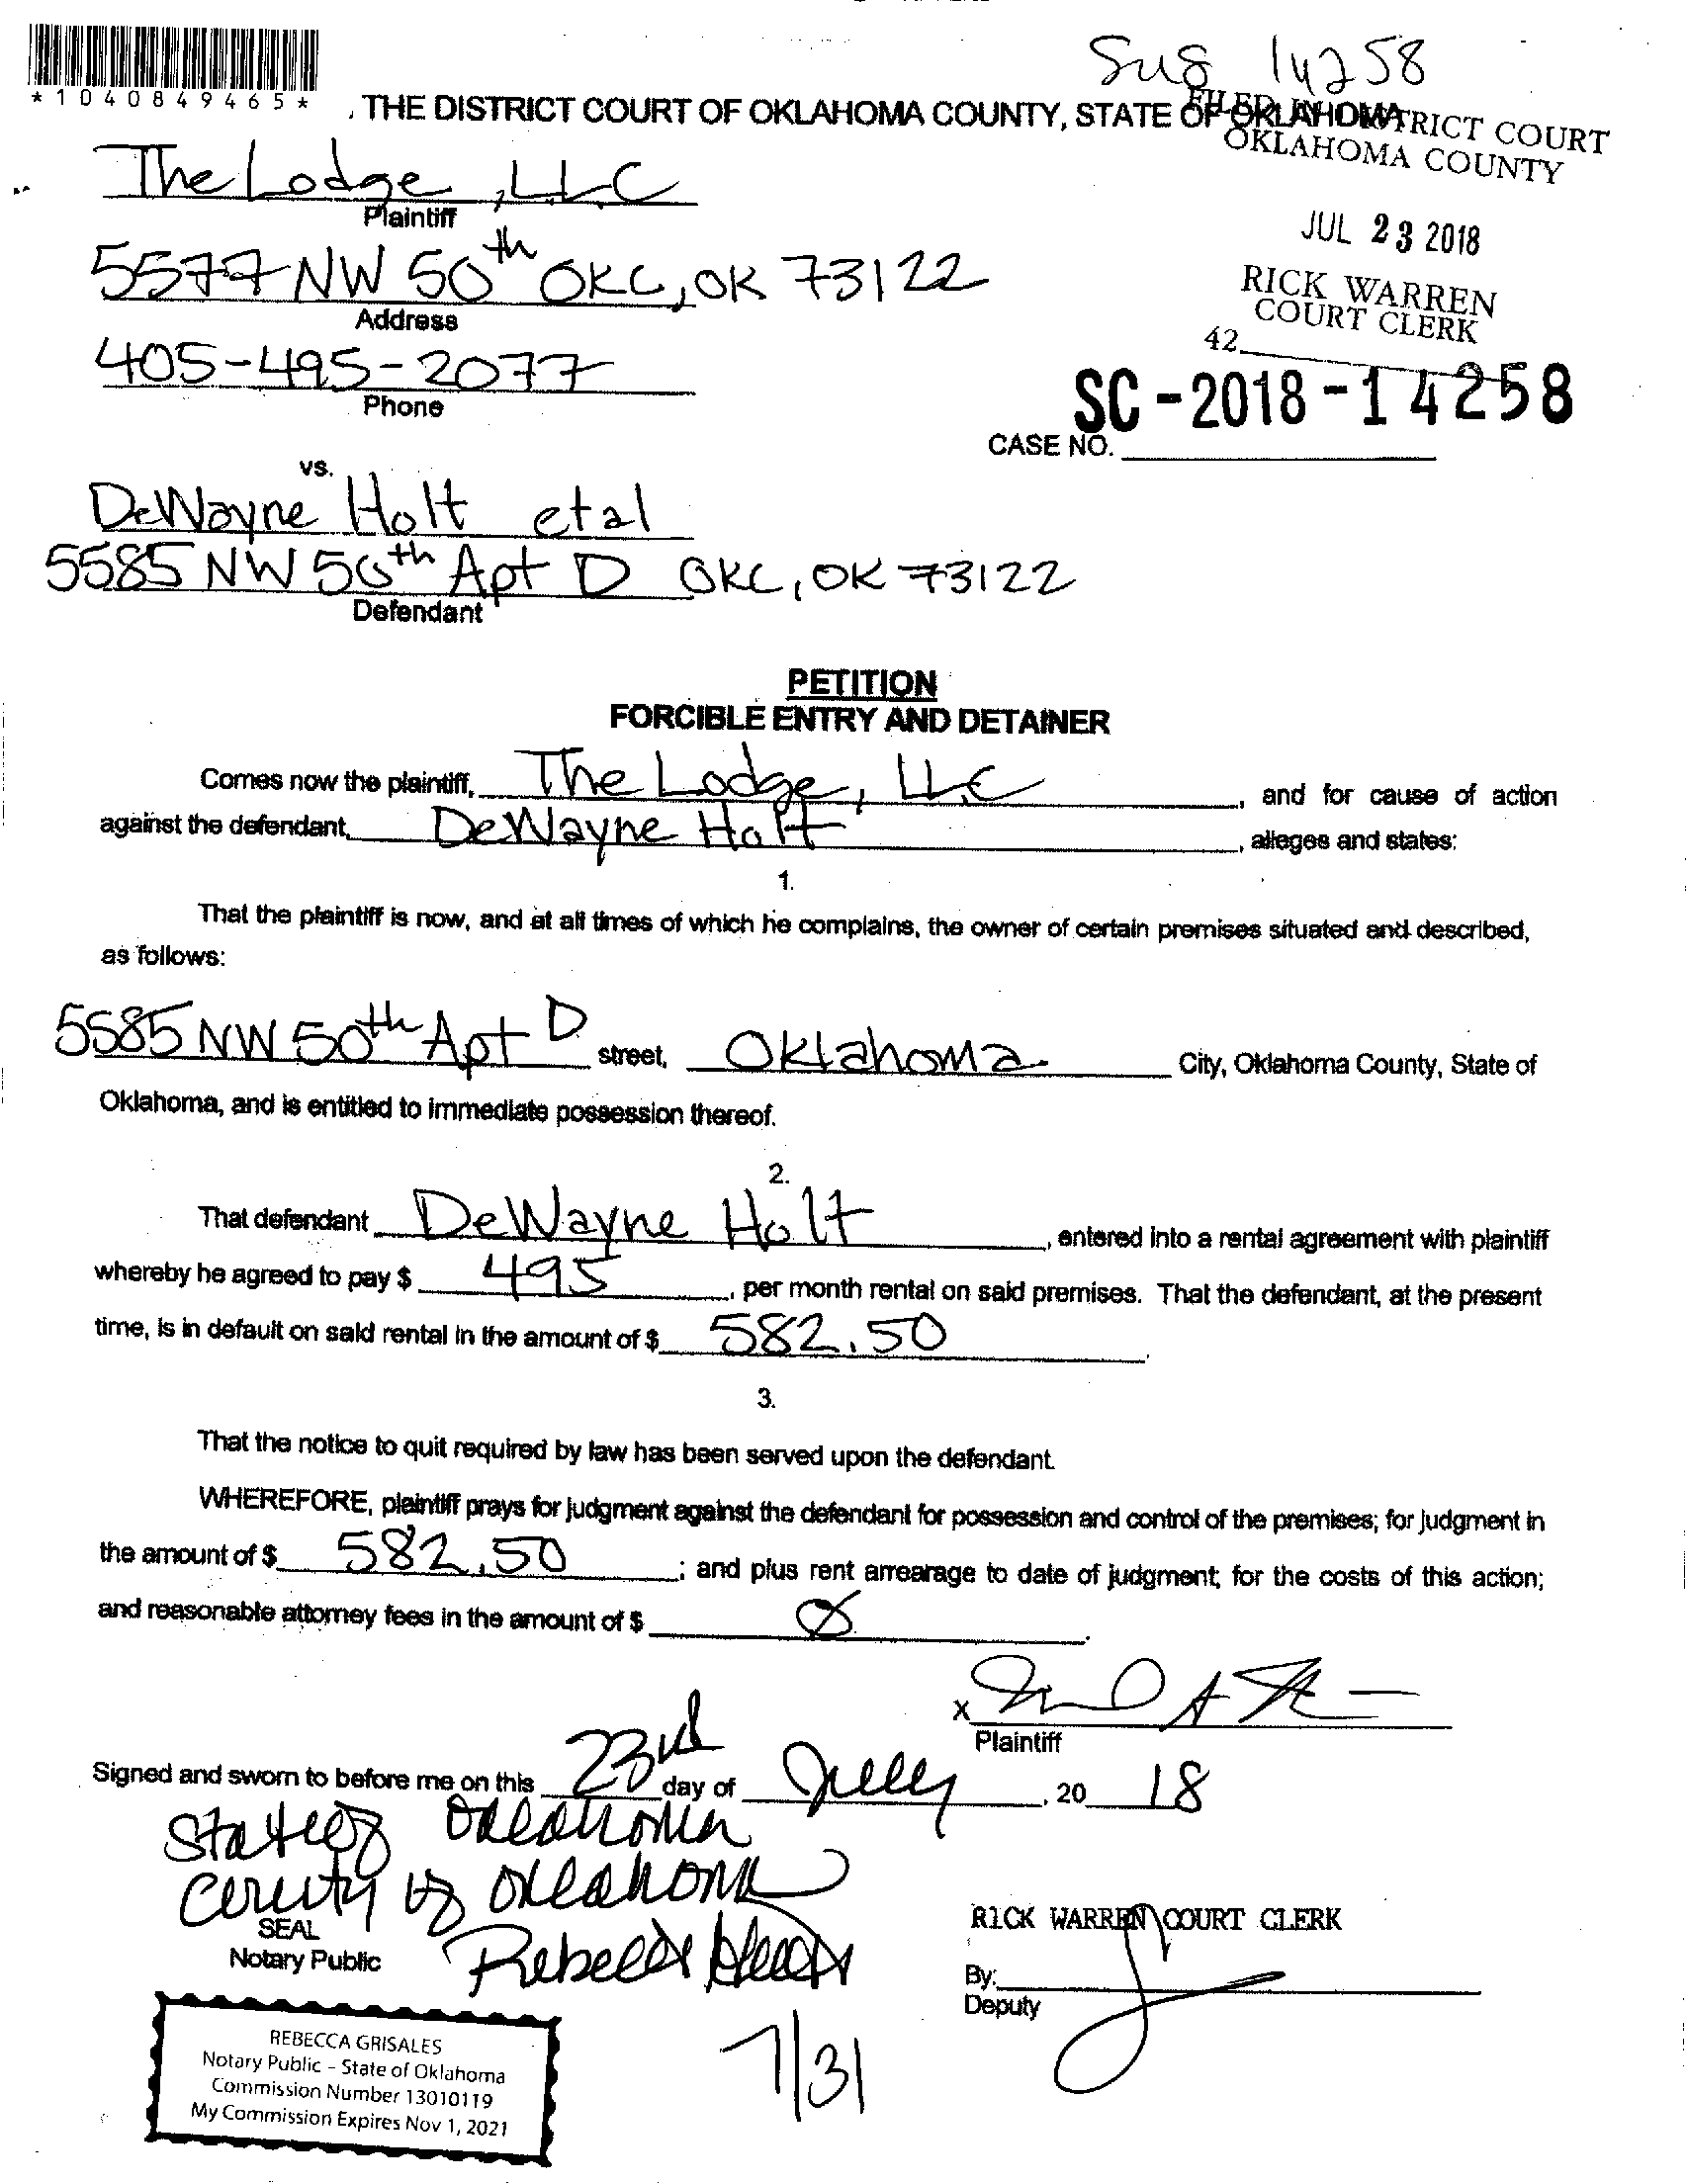 Sus 14258
*1040849465*
, THE DISTRICT COURT OF OKLAHOMA COUNTY, STATE OF OKLAHOMA
FILED IN DISTRICT COURT
OKLAHOMA COUNTY
The Lodge, LLC
Plaintiff
JUL 23 2018
5577 NW 50th OKC, OK 73122
Address
RICK WARREN
COURT CLERK
42
405-495-2077
Phone
SC-2018-14258
CASE NO.
vs.
DeWayne Holt etal
5585 NW 50th Apt D OKC, OK 73122
Defendant
PETITION
FORCIBLE ENTRY AND DETAINER
Comes now the plaintiff, The Lodge, LLC, and for cause of action
against the defendant, DeWayne Holt, alleges and states:
1.
That the plaintiff is now, and at all times of which he complains, the owner of certain premises situated and described,
as follows:
5585 NW 50th Apt D street, Oklahoma City, Oklahoma County, State of
Oklahoma, and is entitled to immediate possession thereof.
2.
That defendant DeWayne Holt, entered into a rental agreement with plaintiff
whereby he agreed to pay $ 495, per month rental on said premises. That the defendant, at the present
time, is in default on said rental in the amount of $ 582.50.
3.
That the notice to quit required by law has been served upon the defendant.
WHEREFORE, plaintiff prays for judgment against the defendant for possession and control of the premises; for judgment in
the amount of $ 582.50; and plus rent arrearage to date of judgment; for the costs of this action;
and reasonable attorney fees in the amount of $ Ø.
X
Plaintiff
Signed and sworn to before me on this 23rd day of July, 20 18
State of Oklahoma
County of Oklahoma
SEAL
Notary Public
RICK WARREN COURT CLERK
By:
Deputy
REBECCA GRISALES
Notary Public - State of Oklahoma
Commission Number 13010119
My Commission Expires Nov 1, 2021
7/31